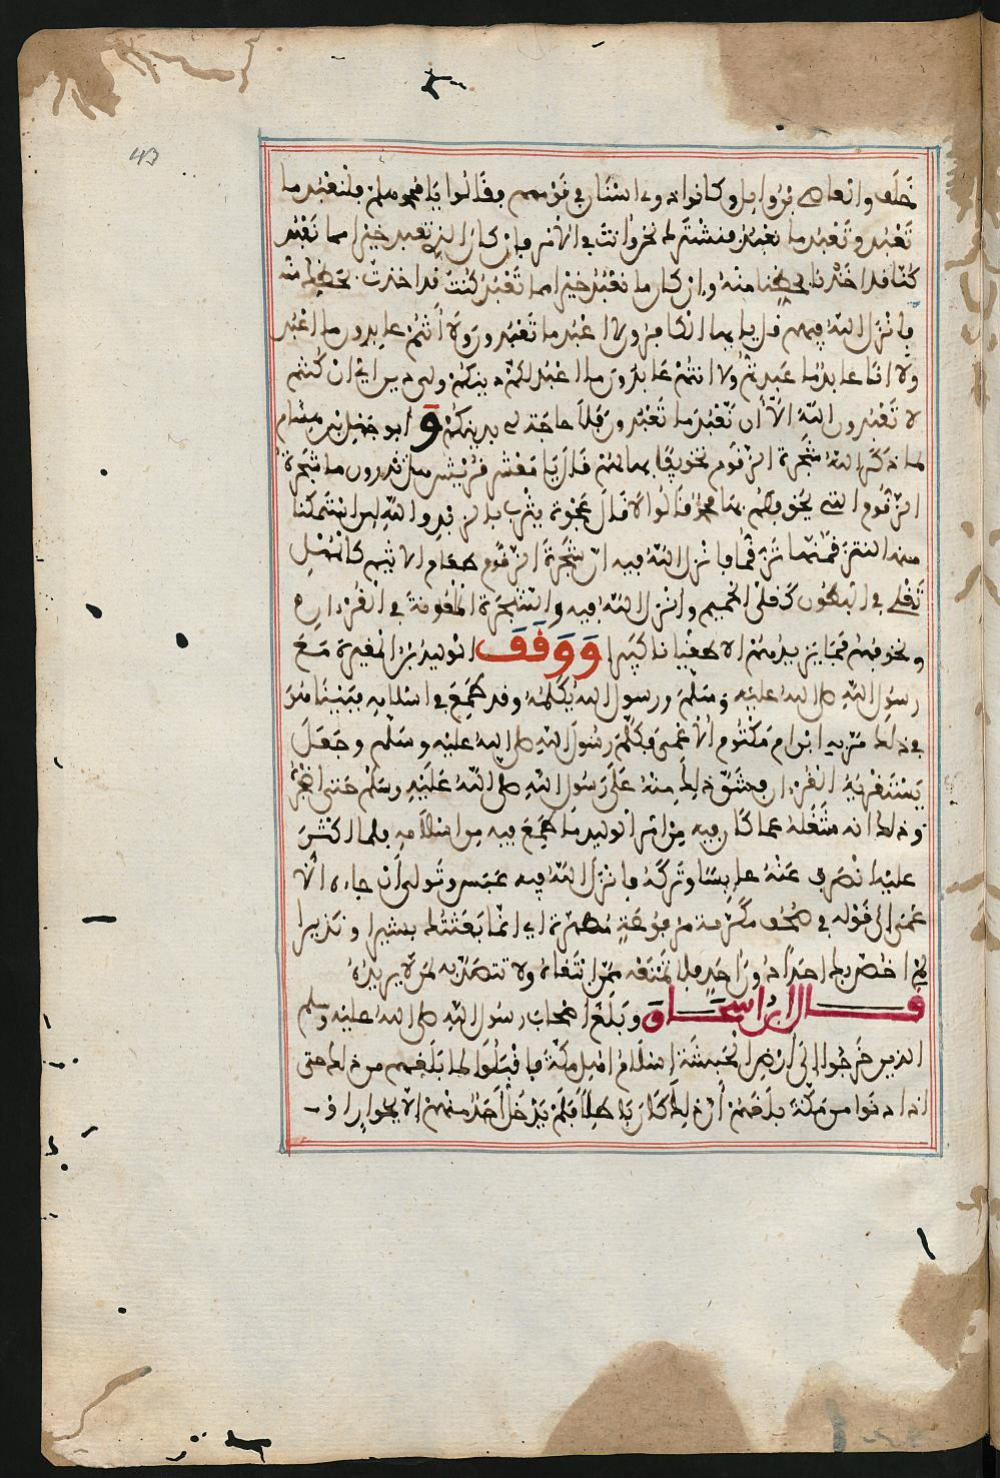 43
خلف والعاصي بن وايل وكانوا ذوي اسنان في قومهم فقالوا يا محمد هلم فلنعبد ما
تعبد وتعبد ما نعبد فنشترك نحن وانت في الامر فان كان الذي تعبد خيرا مما نعبد
كنا قد اخذنا بحظنا منه وان كان ما نعبد خيرا مما تعبد كنت قد اخذت بحظك منه
فانزل الله فيهم قل يا ايها الكافرون لا اعبد ما تعبدون ولا أنتم عابدون ما اعبد
ولا انا عابد ما عبدتم ولا انتم عابدون ما اعبد لكم دينكم ولي دين اي ان كنتم
لا تعبدون الله الا ان نعبد ما تعبدون فلا حاجة لي بدينكم وَ ابو جهل بن هشام
لما ذكر الله شجرة الزقوم تخويفا بها لهم قال يا معشر قريش هل تدرون ما شجرة
الزقوم التي يخوفكم بها محمد قالوا لا قال عجوة يثرب بالزبد والله لين استمكنا
منها لنتزقمنها تزقما فانزل الله فيه ان شجرة الزقوم طعام الاثيم كالمهل
تغلي في البطون كغلي الحميم وانزل الله فيه والشجرة الملعونة في القرءان
ونخوفهم فما يزيدهم الا طغيانا كبيرا وَوَقَفَ الوليد بن المغيرة مع
رسول الله صلى الله عليه وسلم ورسول الله يكلمه وقد طمع في اسلامه فبينما هو
في ذلك مر به ابن ام مكتوم الأعمى فكلم رسول الله صلى الله عليه وسلم وجعل
يستقرئه القرءان فشق ذلك منه على رسول الله صلى الله عليه وسلم حتى اضجره
وذلك انه شغله عما كان فيه من امر الوليد وما طمع فيه من اسلامه فلما اكثر
عليه انصرف عنه عابسا وتركه فانزل الله فيه عبس وتولى أن جاءه الأ
عمى الى قوله في صحف مكرمة مرفوعة مطهرة اي انما بعثتك بشيرا ونذيرا
لم اخصص بك احدا دون احد فلا تمنعه ممن ابتغاه ولا تتصد به لمن لا يريده
قال ابن اسحاق وبلغ اصحاب رسول الله صلى الله عليه وسلم
الذين خرجوا إلى أرض الحبشة اسلام اهل مكة فاقبلوا لما بلغهم من ذلك حتى
اذا دنوا من مكة بلغهم أن ذلك كان باطلا فلم يدخل أحد منهم الا بجوار او